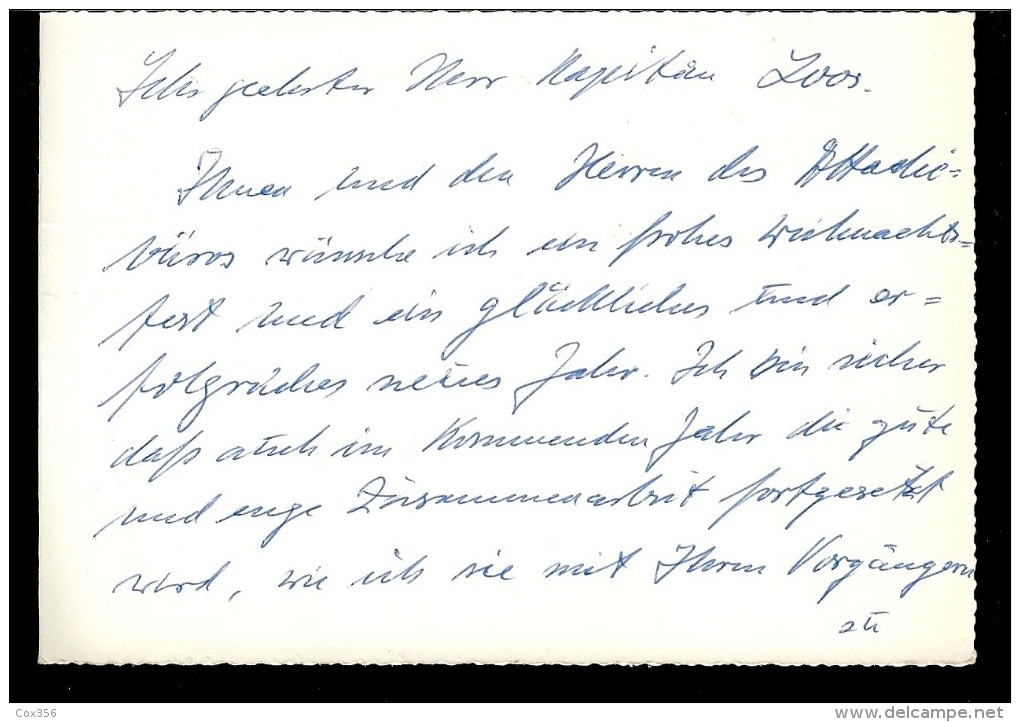 Sehr geehrter Herr Kapitän Loos.
Ihnen und den Herren des Attaché=
büros wünsche ich ein frohes Weihnachts=
fest und ein glückliches und er=
folgreiches neues Jahr. Ich bin sicher
daß auch im kommenden Jahr die gute
und enge Zusammenarbeit fortgesetzt
wird, wie ich sie mit Ihren Vorgängern
zu
Cox356
www.delcampe.net